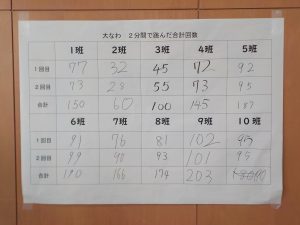 大なわ 2分間で跳んだ合計回数
1班 2班 3班 4班 5班
1回目 77 32 45 72 92
2回目 73 28 55 73 95
合計 150 60 100 145 187
6班 7班 8班 9班 10班
1回目 91 76 81 102
2回目 99 90 93 101 95
合計 190 166 174 203